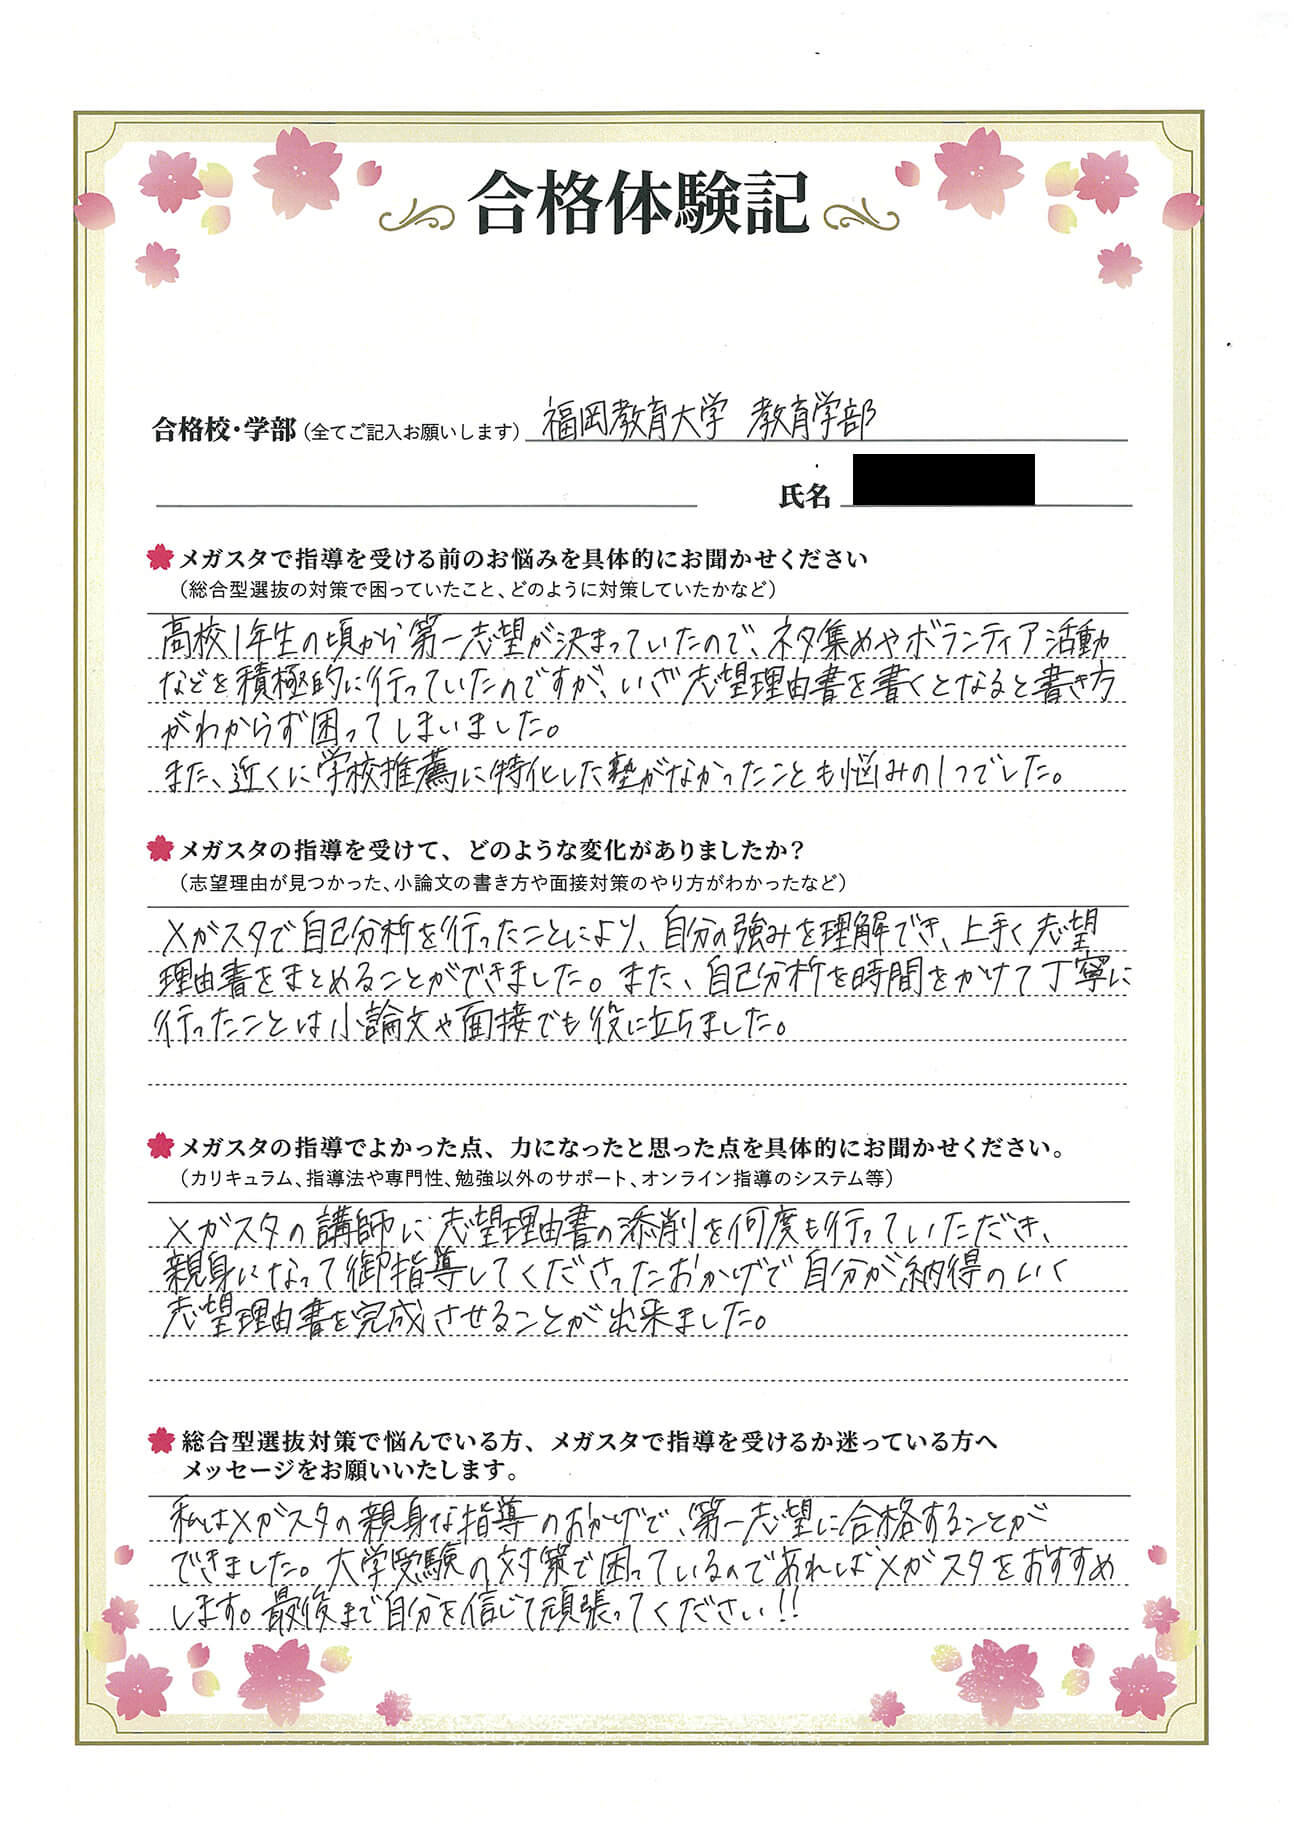 合格体験記
合格校・学部（全てご記入お願いします） 福岡教育大学 教育学部
氏名
メガスタで指導を受ける前のお悩みを具体的にお聞かせください
（総合型選抜の対策で困っていたこと、どのように対策していたかなど）
高校1年生の頃から第一志望が決まっていたので、ネタ集めやボランティア活動
などを積極的に行っていたのですが、いざ志望理由書を書くとなると書き方
がわからず困ってしまいました。
また、近くに学校推薦に特化した塾がなかったことも悩みの1つでした。
メガスタの指導を受けて、どのような変化がありましたか？
（志望理由が見つかった、小論文の書き方や面接対策のやり方がわかったなど）
メガスタで自己分析を行ったことにより、自分の強みを理解でき、上手く志望
理由書をまとめることができました。また、自己分析を時間をかけて丁寧に
行ったことは小論文や面接でも役に立ちました。
メガスタの指導でよかった点、力になったと思った点を具体的にお聞かせください。
（カリキュラム、指導法や専門性、勉強以外のサポート、オンライン指導のシステム等）
メガスタの講師に志望理由書の添削を何度も行っていただき、
親身になって御指導してくださったおかげで自分が納得のいく
志望理由書を完成させることが出来ました。
総合型選抜対策で悩んでいる方、メガスタで指導を受けるか迷っている方へ
メッセージをお願いいたします。
私はメガスタの親身な指導のおかげで、第一志望に合格することが
できました。大学受験の対策で困っているのであればメガスタをおすすめ
します。最後まで自分を信じて頑張ってください!!